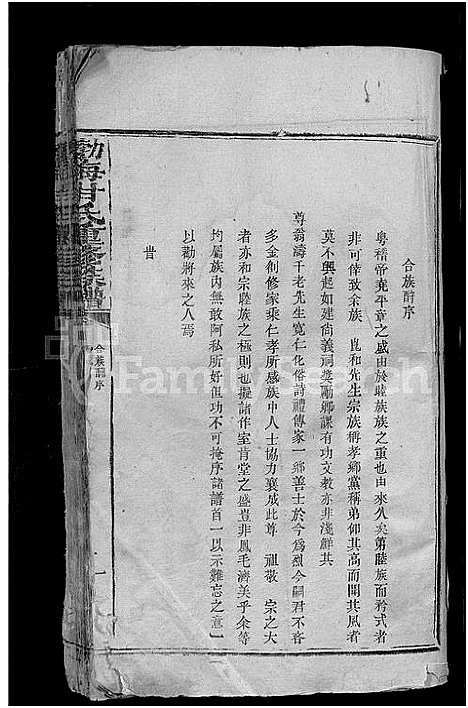 合族酬序
粵稽帝堯平章之盛由於睦族族之重也由來久矣第睦族而矜式者
非可倖致余族 崑和先生宗族稱孝鄉黨稱弟仰其高而聞其風者
莫不興起如建尚義祠獎勵鄉課有功文教亦非淺鮮其
尊翁濤千老先生寬仁化俗詩禮傳家一鄉善士於今為烈今嗣君不吝
多金創修家乘仁孝所感族中人士協力襄成此尊 祖敬 宗之大
者亦和宗睦族之極則也擬諸作室肯堂之盛豈非鳳毛濟美乎余等
均屬族內無敢阿私所好但功不可掩序諸譜首一以示難忘之意一
以勸將來之人焉
昔
渤海甘氏重修族譜
合族酬序
一
FamilySearch